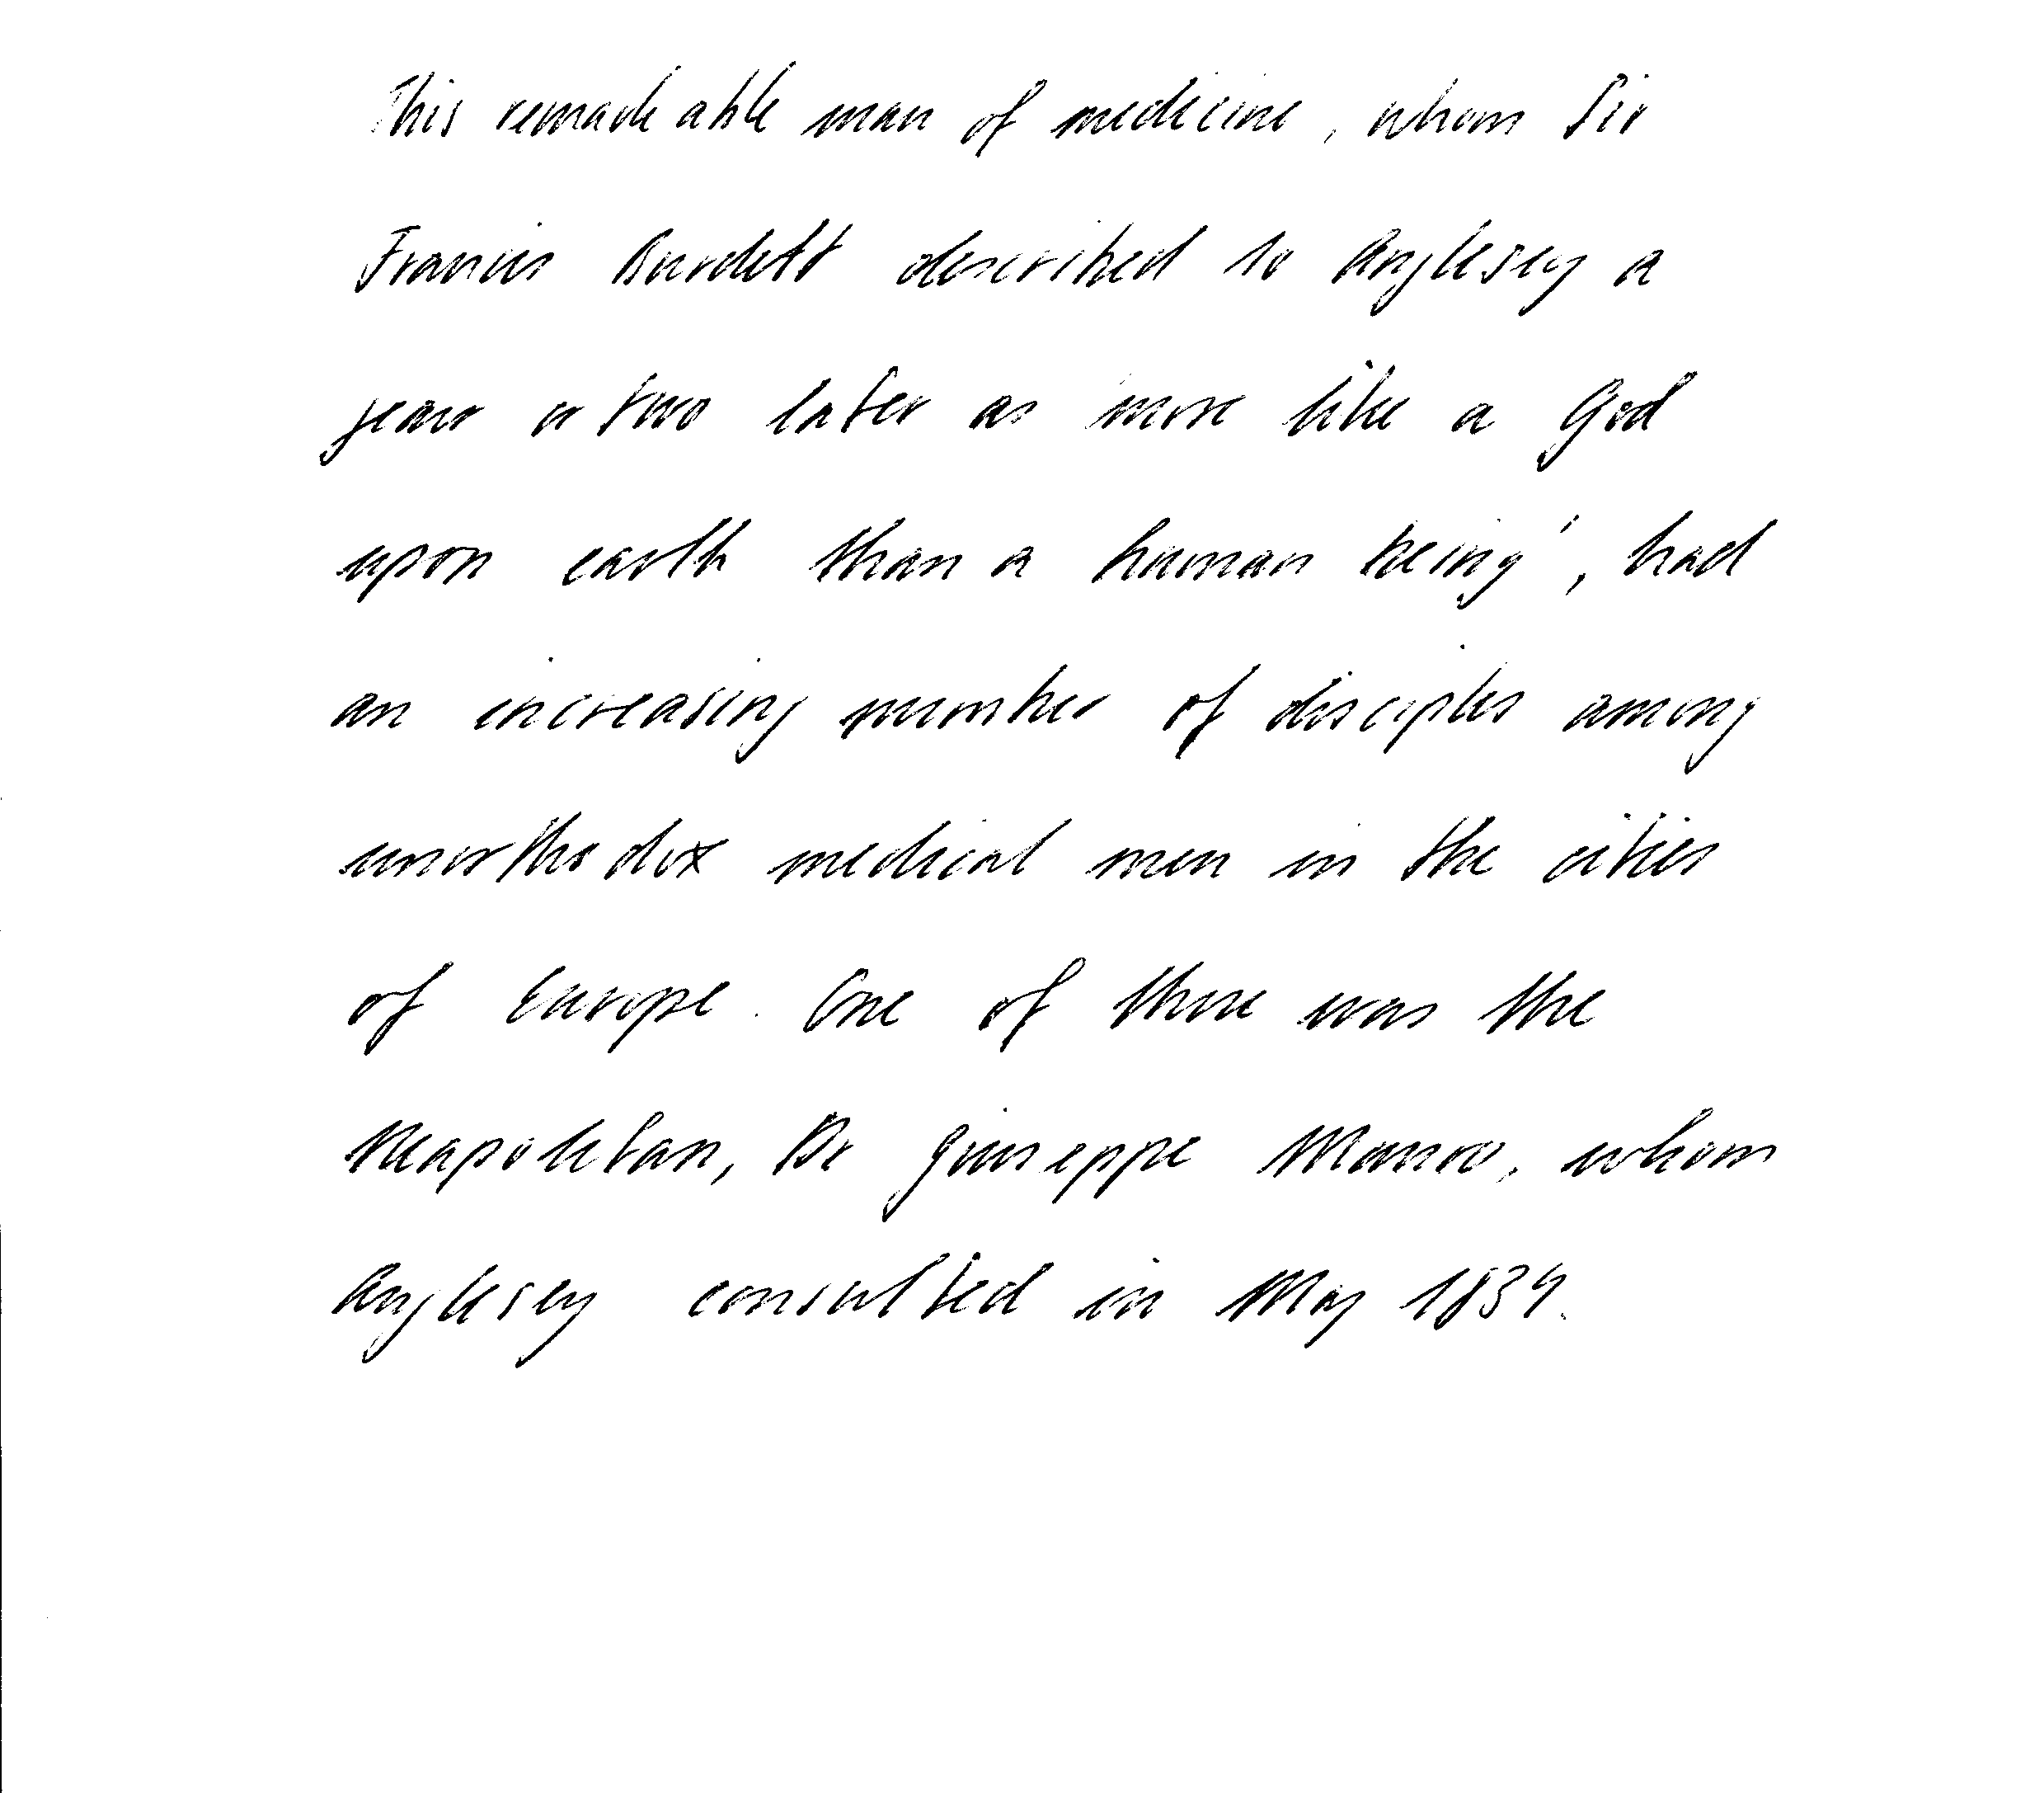 This remarkable man of medicine, whom Sir
Francis Burdett described to Anglesey a
year or two later as 'more like a God
upon earth than a human being', had
an increasing number of disciples among
unorthodox medical men in the cities
of Europe. One of these was the
Neapolitan, Dr Giuseppe Mauro, whom
Anglesey consulted in May 1834.